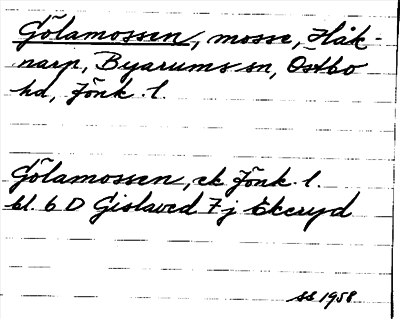 Gölamossen, mosse, Håk-
narp, Byarums sn, Östbo
hd, Jönk. l.
Gölamossen, ek Jönk. l.
bl. 6 D Gislaved 7 j Ekeryd
SS 1958